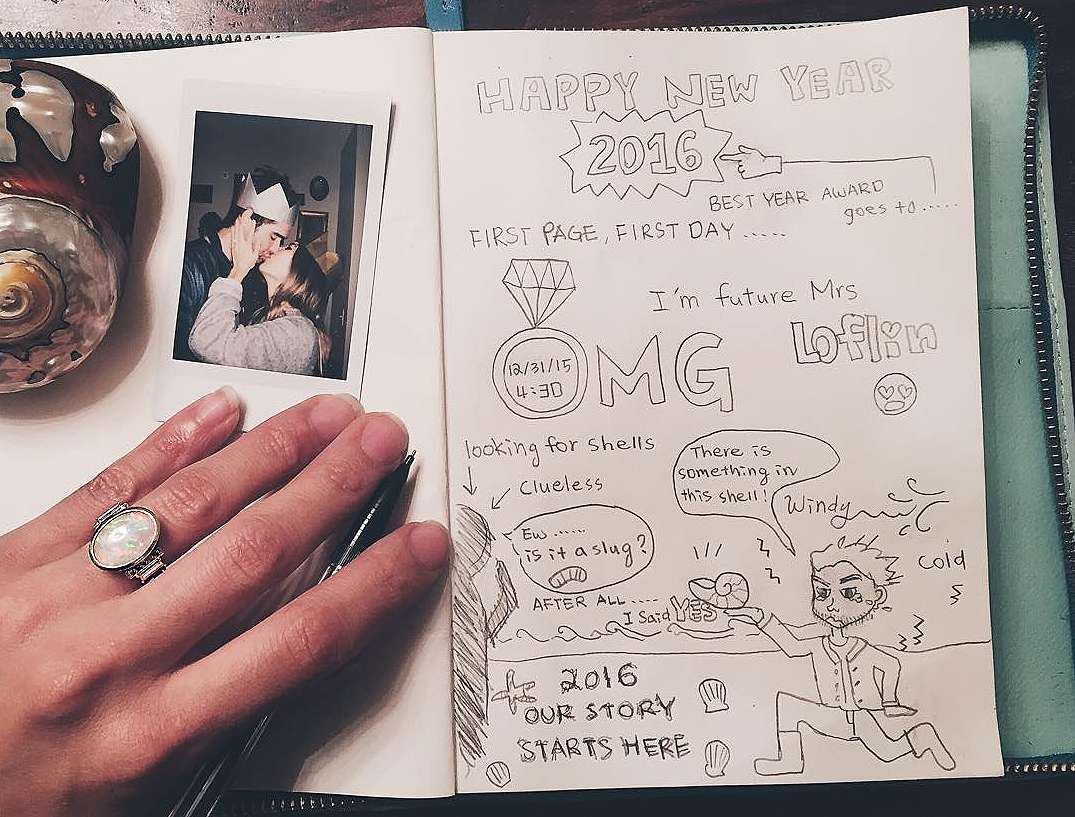 HAPPY NEW YEAR
2016
BEST YEAR AWARD
goes to.....
FIRST PAGE, FIRST DAY.....
I'm future Mrs
Loflin
12/31/15
4:30
OMG
looking for shells
Clueless
There is
something in
this shell!
Windy
Cold
Ew......
is it a slug?
AFTER ALL....
I Said YES
2016
OUR STORY
STARTS HERE